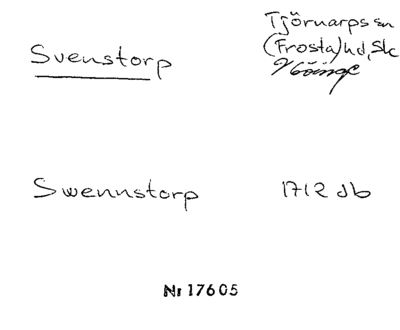 Svenstorp
Tjörnarps sn
(Frosta) hd, Sk
Göinge
Swennstorp
1712 Jb
Nr 17605